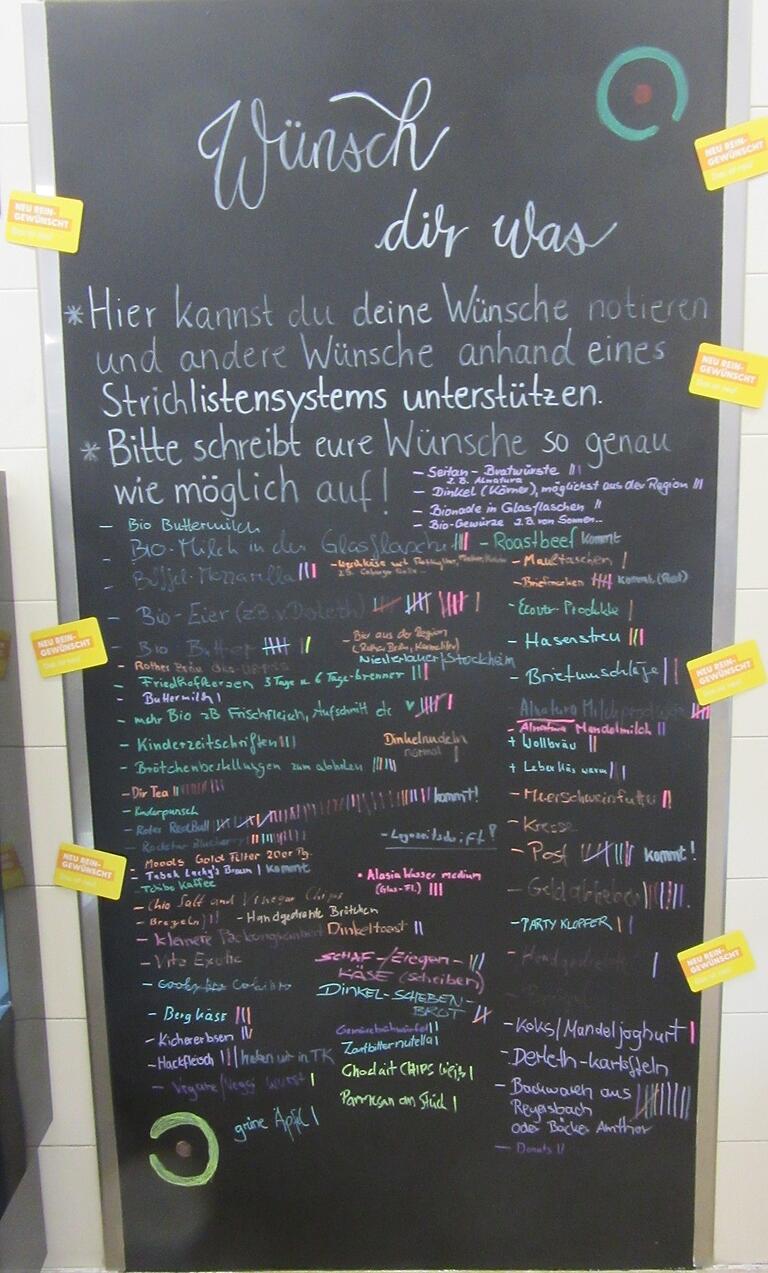 Wünsch
dir was
* Hier kannst du deine Wünsche notieren
und andere Wünsche anhand eines
Strichlistensystems unterstützen.
* Bitte schreibt eure Wünsche so genau
wie möglich auf!
- Seitan-Bratwürste
z.B. Alnatura
- Dinkel (Körner), möglichst aus der Region
- Bionade in Glasflaschen
- Bio-Gewürze z.B. von Sonnen..
- Bio Buttermilch
- Bio-Milch in der Glasflasche
- Büffel-Mozzarella
- Bio-Eier (z.B. v. Deeleth)
- Bio Butter
- Bio aus der Region
- Rother Bräu
Niederlauer/Stockheim
- Friedhofkerzen 3 Tage u. 6 Tage-brenner
- Buttermilch
- mehr Bio zB Frischfleisch, Aufschnitt etc
- Kinderzeitschriften
Dinkelnudeln
normal
- Brötchenbestellungen zum abholen
- Dir Tea
kommt!
- Kinderpunsch
- Roter RedBull
- Rockstar Blueberry
- Moods Gold Filter 20er Pg.
- Tabak Lucky's Braun kommt
Tchibo Kaffee
- Chio Salt and Vinegar Chips
- Brezeln
- Handgedrehte Brötchen
- kleinere
Dinkeltoast
- Vitz Exotic
- Bergkäse
- Kichererbsen
- Hackfleisch haben wir in TK
- Vegane/Veggi Wurst
grüne Äpfel
• Alasia Wasser medium
(Glas-Fl.)
SCHAF-/Ziegen-
KÄSE (Scheiben)
DINKEL-SCHEBEN-
BROT
Gemüsebrühwürfel
Zartbitternutella
Chocolait CHIPS Weiß
Parmesan am Stück
- Roastbeef kommt
- Maultaschen
- Briefmarken kommt (Post)
- Ecover-Produkte
- Hasenstreu
- Briefumschläge
- Alnatura Milchprodukte
- Alnatura Mandelmilch
+ Wollbräu
+ Leberkäs warm
- Meerschweinfutter
- Kresse
- Post kommt!
- Geldabheben
- PARTY KLOPFER
- Koks/Mandeljoghurt
- Derleth-Kartoffeln
- Backwaren aus
Reyersbach
oder Bäcker Amthor
- Donuts
NEU REIN-
GEWÜNSCHT
NEU REIN-
GEWÜNSCHT
NEU REIN-
GEWÜNSCHT
NEU REIN-
GEWÜNSCHT
NEU REIN-
GEWÜNSCHT
NEU REIN-
GEWÜNSCHT
NEU REIN-
GEWÜNSCHT